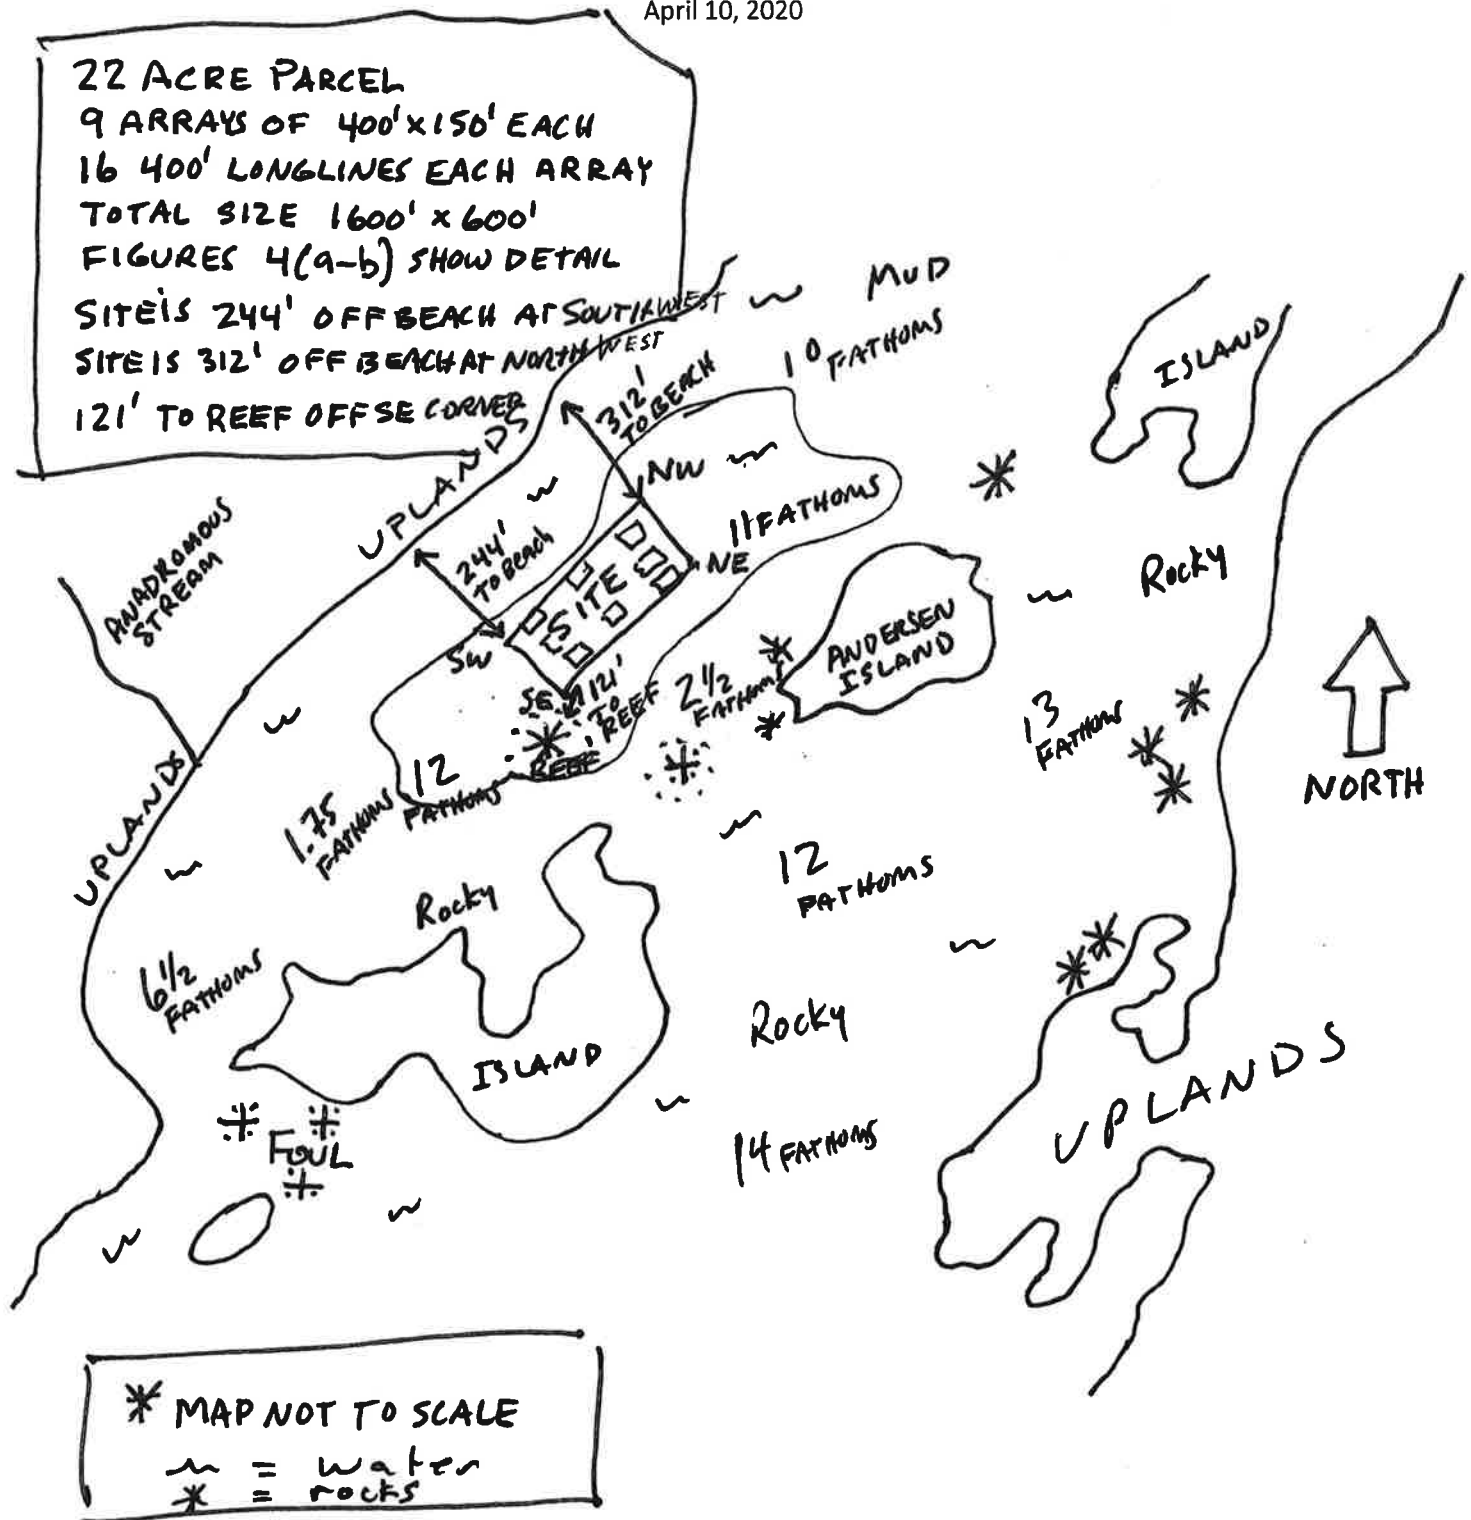 April 10, 2020
22 ACRE PARCEL
9 ARRAYS OF 400' x 150' EACH
16 400' LONGLINES EACH ARRAY
TOTAL SIZE 1600' x 600'
FIGURES 4(a-b) SHOW DETAIL
SITE IS 244' OFF BEACH AT SOUTHWEST
SITE IS 312' OFF BEACH AT NORTHWEST
121' TO REEF OFF SE CORNER
MUD
10 FATHOMS
ISLAND
312'
TO BEACH
UPLANDS
NW
11 FATHOMS
244'
TO Beach
NE
SITE
Rocky
ANADROMOUS
STREAM
SW
SE
121'
TO
REEF
REEF
2 1/2
FATHOMS
ANDERSEN
ISLAND
13
FATHOMS
NORTH
UPLANDS
1.75
FATHOMS
12
FATHOMS
12
FATHOMS
Rocky
6 1/2
FATHOMS
Rocky
ISLAND
UPLANDS
14 FATHOMS
FOUL
* MAP NOT TO SCALE
~ = water
* = rocks